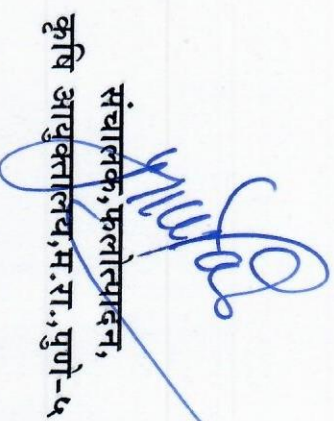 संचालक,फलोत्पादन,
कृषि आयुक्तालय,म.रा.,पुणे-५